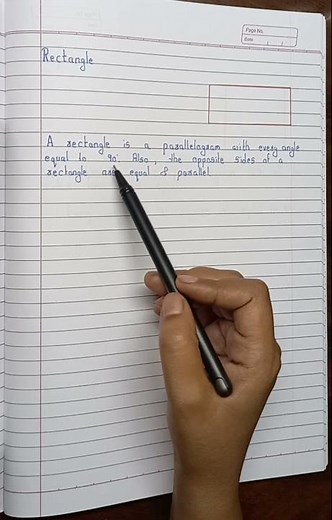 Page No.
Date
Rectangle
A rectangle is a parallelogram with every angle
equal to 90°. Also, the opposite sides of a
rectangle are equal & parallel.